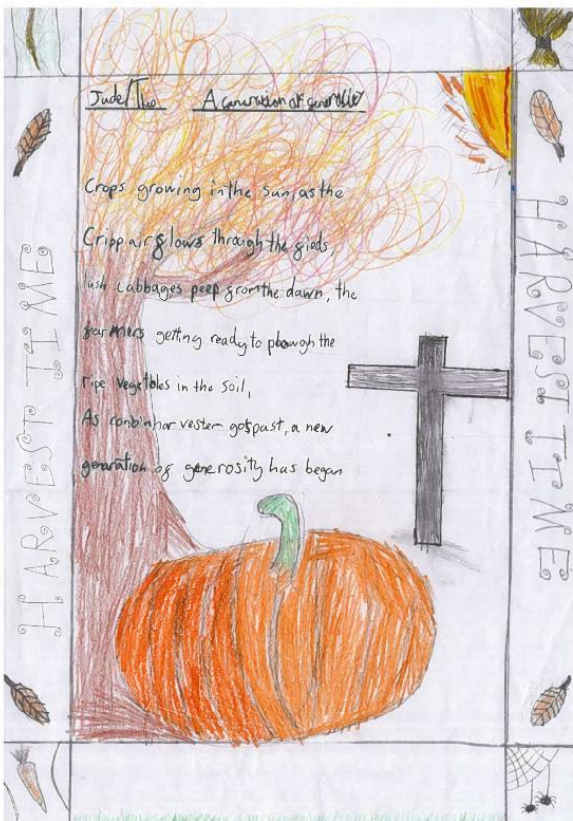 Jude/Theo A generation of generosity
Crops growing in the sun, as the
Cripp air glows through the gieds,
lush Cabbages peep grom the dawn, the
garmers getting ready to plowgh the
ripe vegetables in the soil,
As conbinharvester gos past, a new
generation of generosity has began
HARVEST TIME
HARVEST TIME